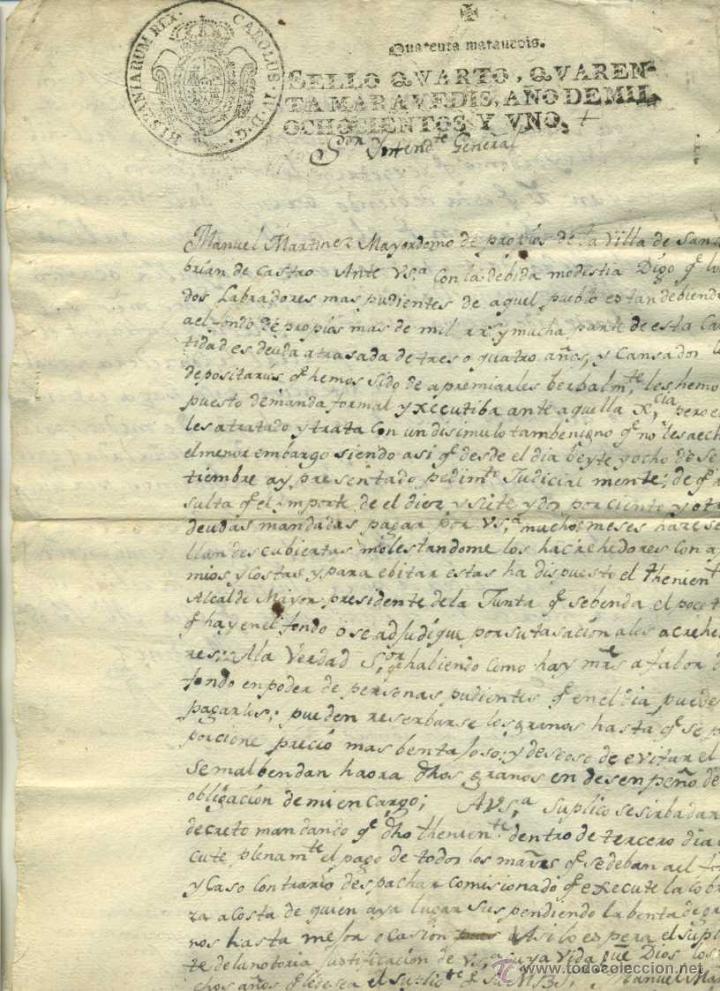 CAROLUS IV D.G. HISPANIARUM REX
Quarenta maravedis.
SELLO QVARTO, QVAREN-
TA MARAVEDIS, AÑO DE MIL
OCHOCIENTOS Y VNO.
S.or Yntend.te General
Manuel Martinez Mayordomo de propios de la Villa de San
brian de Castro Ante Vs.a con la debida modestia Digo q.e lo
dos Labradores mas pudientes de aquel pueblo estan debiendo
ael fondo de propios mas de mil rr.s y mucha parte de esta Can
tidad es deuda atrasada de tres o quatro años, y Cansados l
depositarios q.e hemos sido de apremiarles berbalm.te les hemo
puesto demanda formal y executiba ante aquella
les a tratado y trata con un disimulo tam benigno q.e no les a ech
el menor embargo siendo asi q.e desde el dia beyte y ocho de Se
tiembre ay presentado pedim.to Judicial mente; de q.e
sulta q.e el importe de el diez y siete y dos por ciente y otr
deudas mandadas pagar por Vs.a muchos meses hace se
llan descubiertas molestandome los hacrehedores con a
mios y costas y para ebitar estas ha dispuesto el thenien.te
Alcalde Mayor presidente de la Junta q.e se benda el poco t
q.e hay en el fondo o se adjudique por su tasacion a los acrehe
res; A la Verdad S.or q.e haliendo como hay mrs a fabor d
fondo en poder de personas pudientes q.e en el dia puede
pagarlos; pueden reserbarse los granos hasta q.e se p
porcione precio mas bentajoso; y deseoso de evitar el
se malbendan haora dhos granos en desenpeño de
obligacion de mi encargo; A Vs.a Suplico se sirba dar
decreto mandando q.e dho thenien.te dentro de tercero dia
cute plenam.te el pago de todos los mrs q.e se deban a el fo
y Caso contrario despachar comisionado q.e execute la cobra
za a costa de quien aya lugar suspendiendo la benta de gra
nos hasta mejor ocasion Asi lo espera el supli
te de la notoria justificacion de Vs.a cuya Vida gue Dios los
chos años Manuel Ma
www.todocoleccion.net